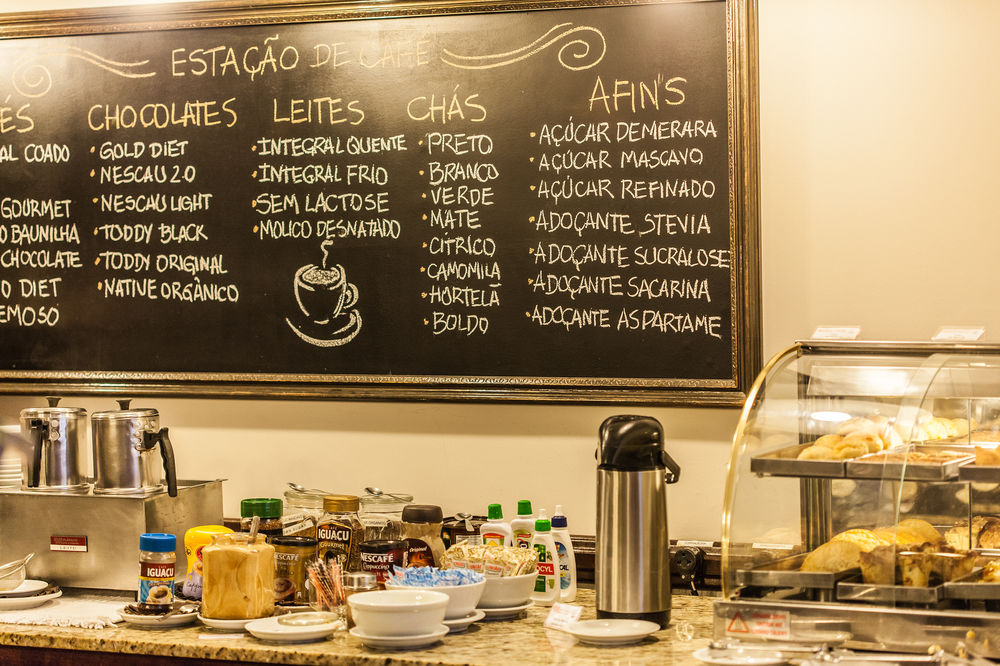 ESTAÇÃO DE CAFÉ
ÉS
AL COADO
GOURMET
O BAUNILHA
CHOCOLATE
O DIET
EMOSO
CHOCOLATES
GOLD DIET
NESCAU 2.0
NESCAU LIGHT
TODDY BLACK
TODDY ORIGINAL
NATIVE ORGÂNICO
LEITES
INTEGRAL QUENTE
INTEGRAL FRIO
SEM LACTOSE
MOLICO DESNATADO
CHÁS
PRETO
BRANCO
VERDE
MATE
CÍTRICO
CAMOMILA
HORTELÃ
BOLDO
AFIN'S
AÇÚCAR DEMERARA
AÇÚCAR MASCAVO
AÇÚCAR REFINADO
ADOÇANTE STEVIA
ADOÇANTE SUCRALOSE
ADOÇANTE SACARINA
ADOÇANTE ASPARTAME
LEITE
IGUAÇU
IGUAÇU
NESCAFÉ
NESCAFÉ
Cappuccino